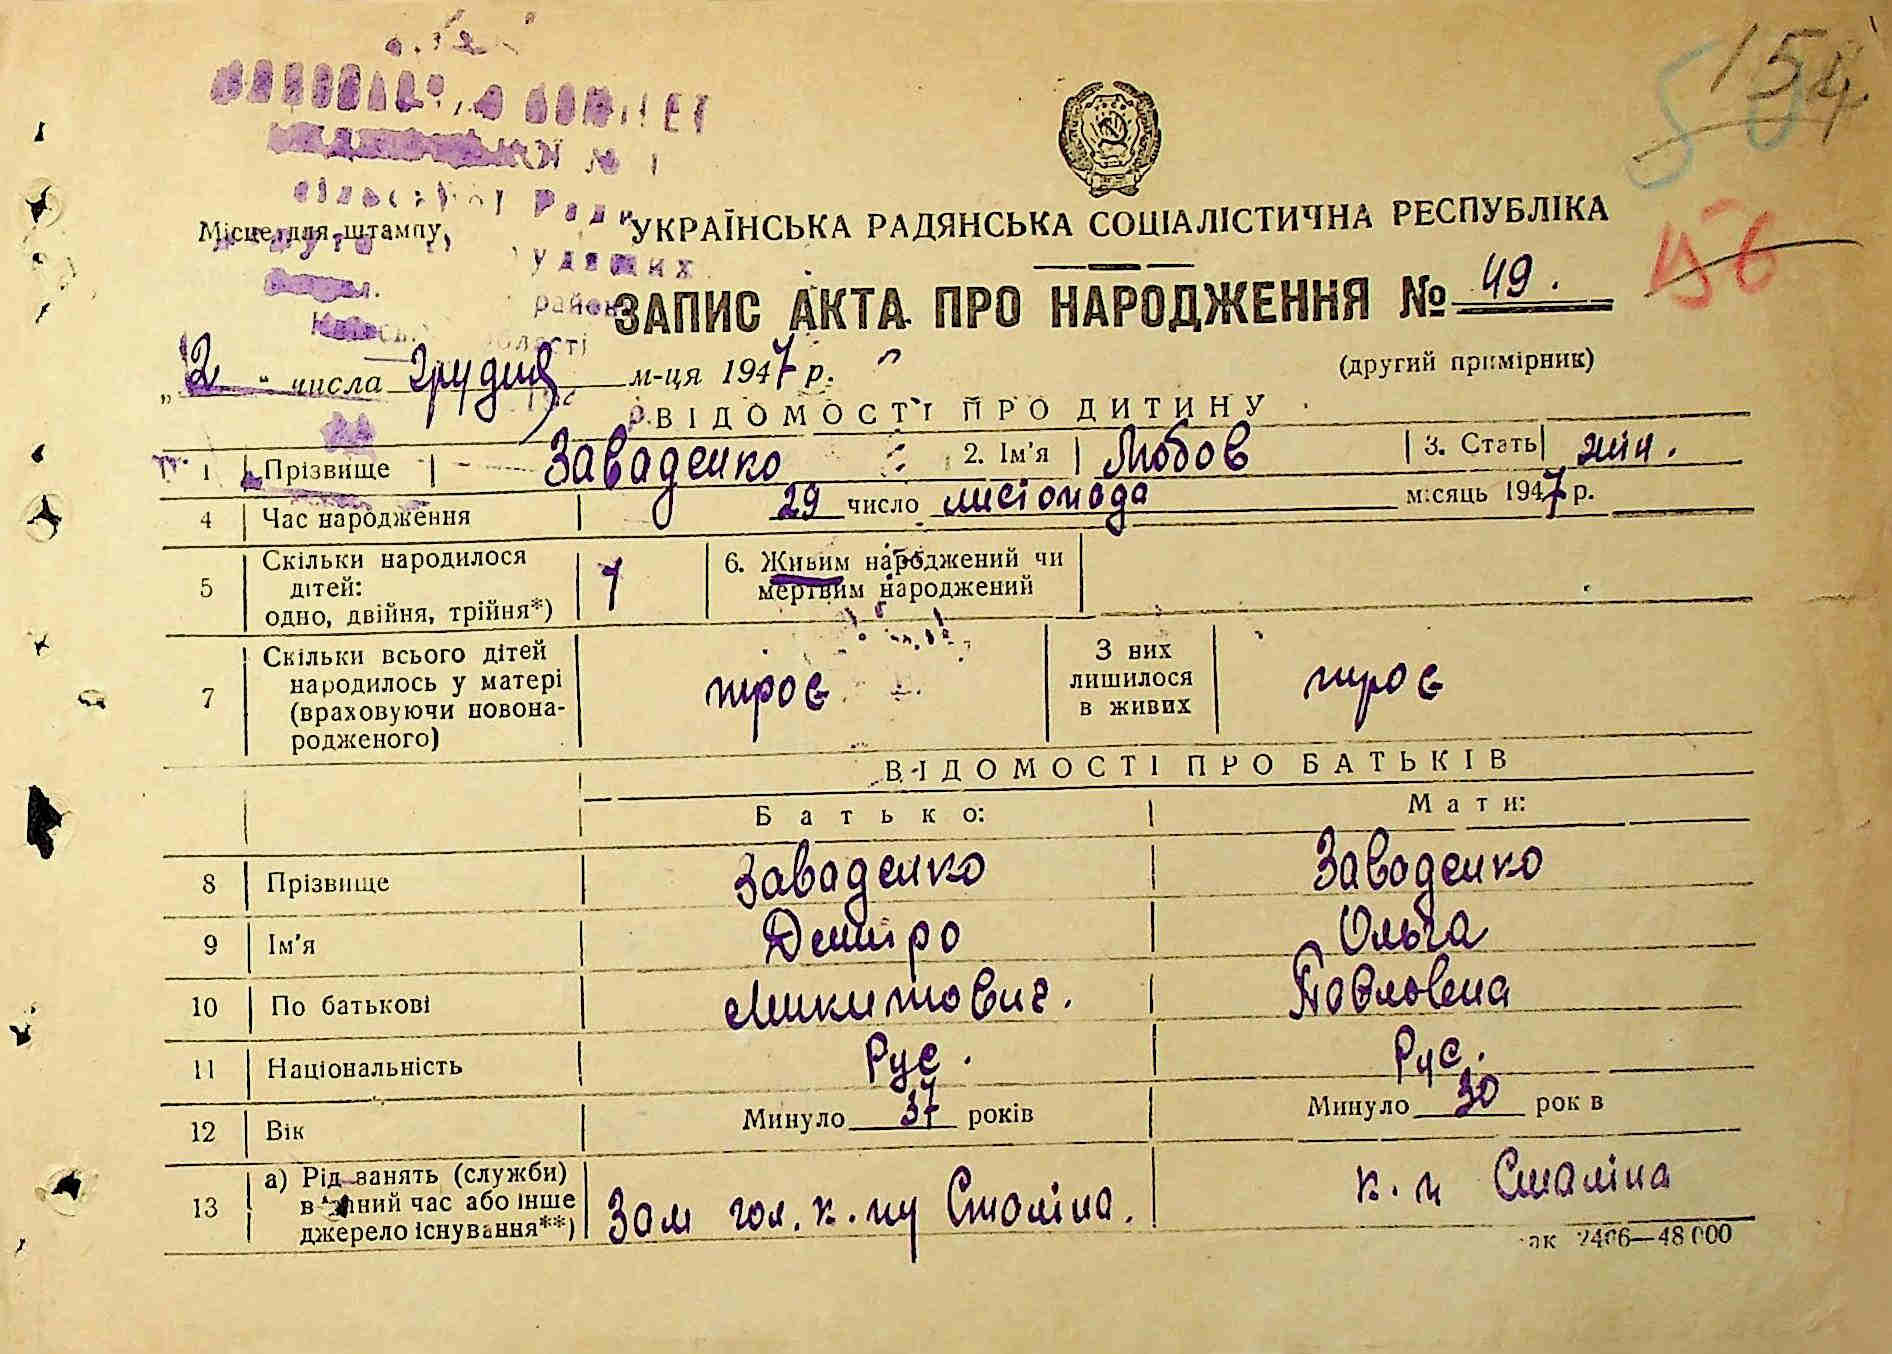 154
50
156
№ 1
Місце для штампу
УКРАЇНСЬКА РАДЯНСЬКА СОЦІАЛІСТИЧНА РЕСПУБЛІКА
ЗАПИС АКТА ПРО НАРОДЖЕННЯ № 49.
(другий примірник)
„2“ числа грудня м-ця 1947 р.
ВІДОМОСТІ ПРО ДИТИНУ
1 Прізвище Заваденко 2. Ім'я Любов 3. Стать жін.
4 Час народження 29 число листопада місяць 1947 р.
5 Скільки народилося дітей: одно, двійня, трійня*) 1 6. Живим народжений чи мертвим народжений
7 Скільки всього дітей народилось у матері (враховуючи новонародженого) троє З них лишилося в живих троє
ВІДОМОСТІ ПРО БАТЬКІВ
Батько: Мати:
8 Прізвище Заваденко Заваденко
9 Ім'я Дмитро Ольга
10 По батькові Микитович. Павловна
11 Національність Рус. Рус.
12 Вік Минуло 37 років Минуло 30 рок в
13 а) Рід занять (служби) в даний час або інше джерело існування**) Зам гол. к-пу Сталіна. к-п Сталіна
ак 2406—48 000